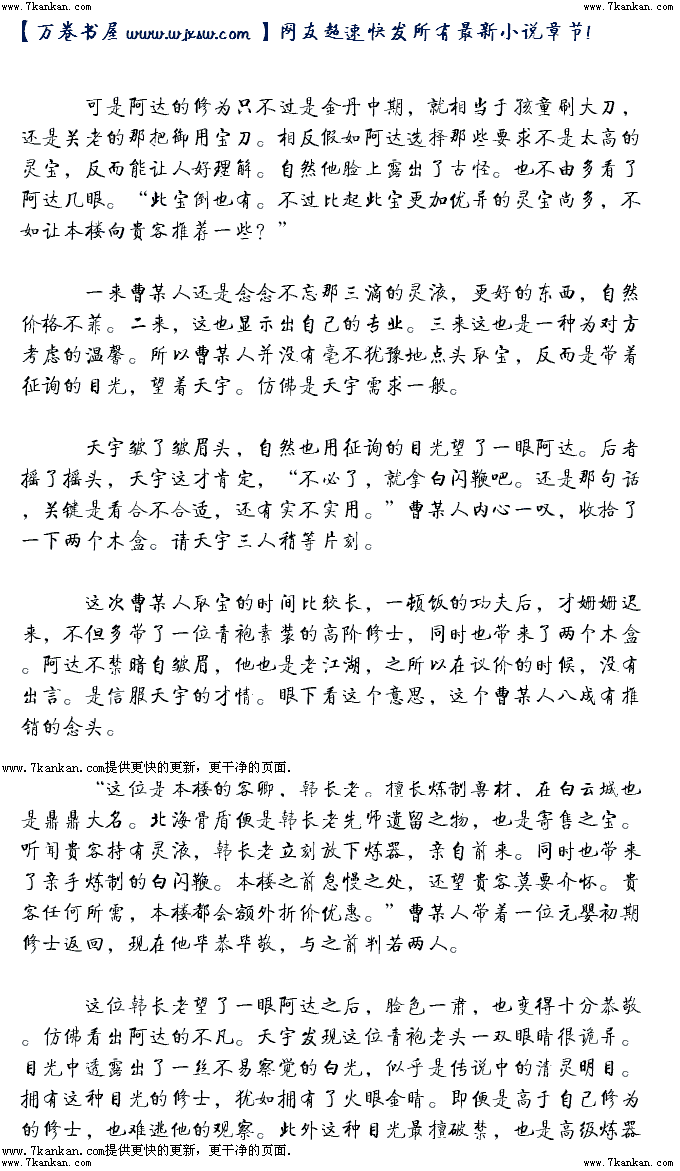 www.7kankan.com www.7kankan.com
【万卷书屋 www.wjxsw.com 】网友超速快发所有最新小说章节！
可是阿达的修为只不过是金丹中期，就相当于孩童刷大刀，
还是关老的那把御用宝刀。相反假如阿达选择那些要求不是太高的
灵宝，反而能让人好理解。自然他脸上露出了古怪。也不由多看了
阿达几眼。“此宝倒也有。不过比起此宝更加优异的灵宝尚多，不
如让本楼向贵客推荐一些？”
一来曹某人还是念念不忘那三滴的灵液，更好的东西，自然
价格不菲。二来，这也显示出自己的专业。三来这也是一种为对方
考虑的温馨。所以曹某人并没有毫不犹豫地点头取宝，反而是带着
征询的目光，望着天宇。仿佛是天宇需求一般。
天宇皱了皱眉头，自然也用征询的目光望了一眼阿达。后者
摇了摇头，天宇这才肯定，“不必了，就拿白闪鞭吧。还是那句话
，关键是看合不合适，还有实不实用。”曹某人内心一叹，收拾了
一下两个木盒。请天宇三人稍等片刻。
这次曹某人取宝的时间比较长，一顿饭的功夫后，才姗姗迟
来，不但多带了一位青袍素装的高阶修士，同时也带来了两个木盒
。阿达不禁暗自皱眉，他也是老江湖，之所以在议价的时候，没有
出言。是信服天宇的才情。眼下看这个意思，这个曹某人八成有推
销的念头。
www.7kankan.com提供更快的更新，更干净的页面.
“这位是本楼的客卿，韩长老。擅长炼制兽材，在白云城也
是鼎鼎大名。北海骨盾便是韩长老先师遗留之物，也是寄售之宝。
听闻贵客持有灵液，韩长老立刻放下炼器，亲自前来。同时也带来
了亲手炼制的白闪鞭。本楼之前怠慢之处，还望贵客莫要介怀。贵
客任何所需，本楼都会额外折价优惠。”曹某人带着一位元婴初期
修士返回，现在他毕恭毕敬，与之前判若两人。
这位韩长老望了一眼阿达之后，脸色一肃，也变得十分恭敬
。仿佛看出阿达的不凡。天宇发现这位青袍老头一双眼睛很诡异。
目光中透露出了一丝不易察觉的白光，似乎是传说中的清灵明目。
拥有这种目光的修士，犹如拥有了火眼金睛。即便是高于自己修为
的修士，也难逃他的观察。此外这种目光最擅破禁，也是高级炼器
www.7kankan.com提供更快的更新，更干净的页面.
www.7kankan.com www.7kankan.com